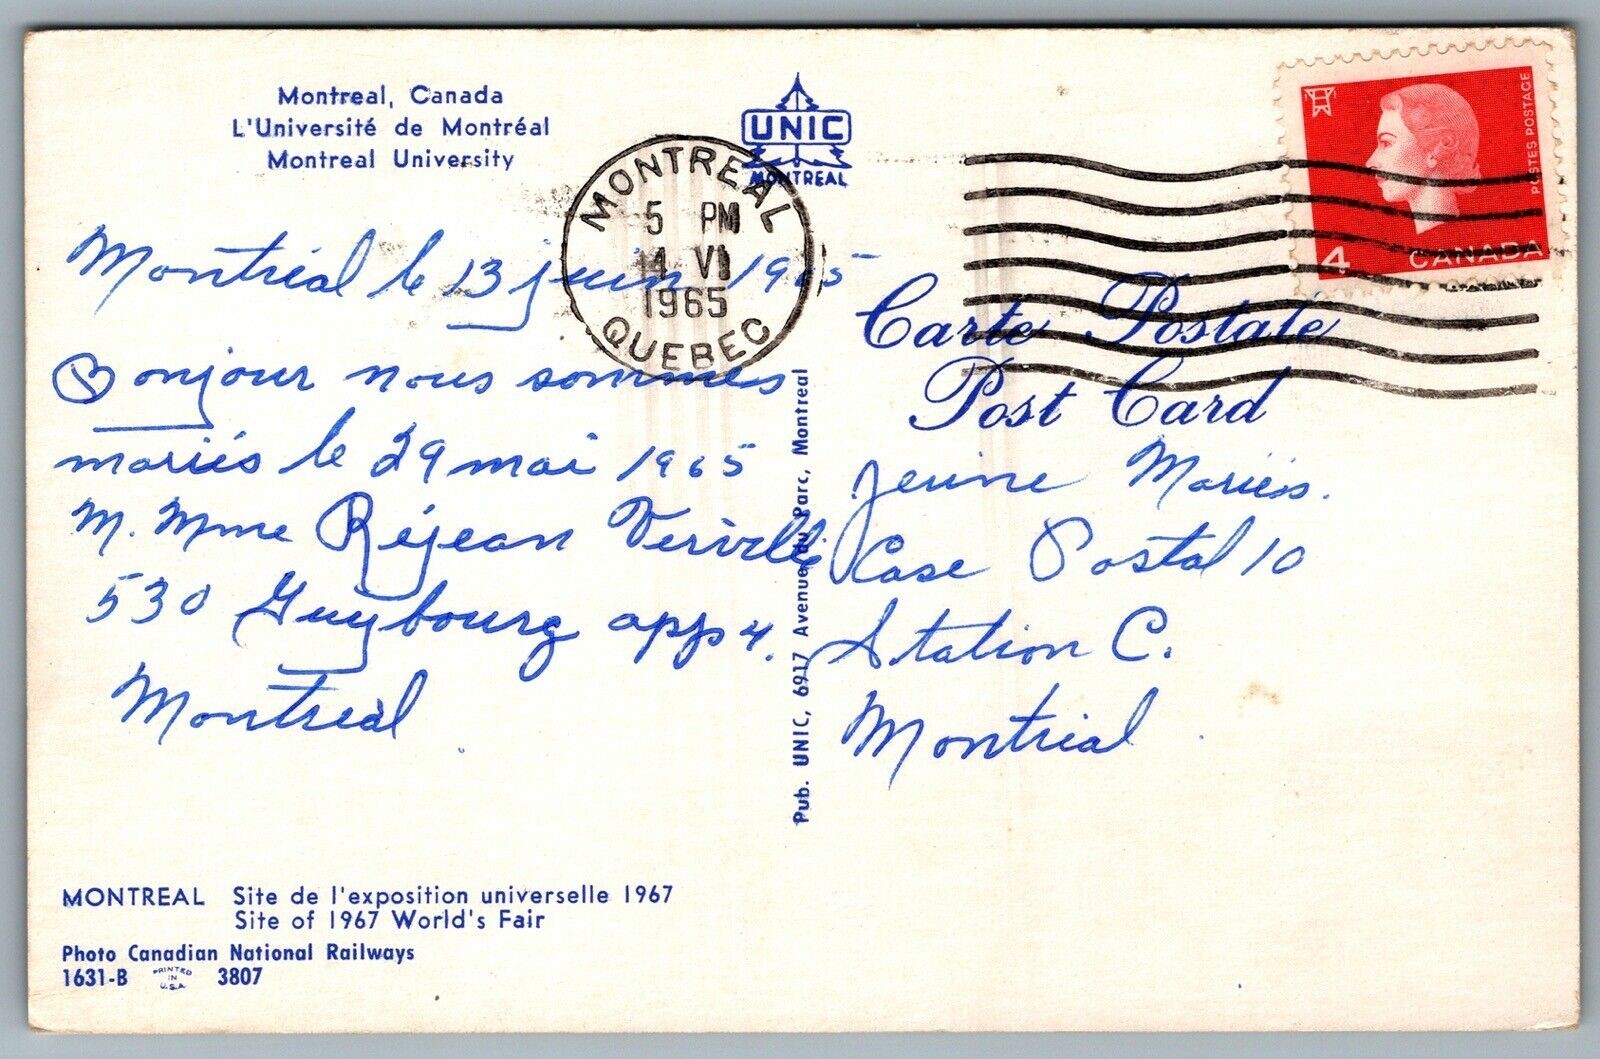 Montreal, Canada
L'Université de Montréal
Montreal University
UNIC
MONTREAL
MONTREAL
5 PM
14 VI
1965
QUEBEC
POSTES POSTAGE
4 CANADA
Montréal le 13 juin 1965
Bonjour nous sommes
mariés le 29 mai 1965
M. Mme Réjean Verville
530 Guybourg app 4.
Montréal
Carte Postale
Post Card
Jeune Mariés.
Case Postal 10
Station C.
Montréal
Pub. UNIC, 6917 Avenue du Parc, Montreal
MONTREAL Site de l'exposition universelle 1967
Site of 1967 World's Fair
Photo Canadian National Railways
1631-B PRINTED IN U.S.A. 3807